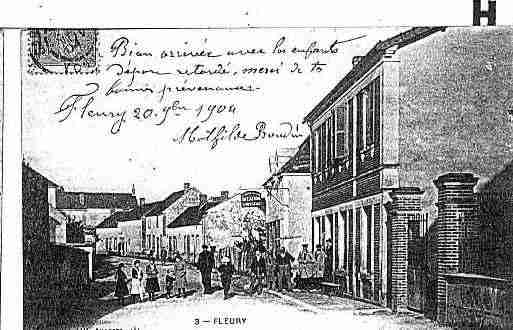 H
Bien arrivée avec les enfants
dépor retardé, merci de ts
bonnes prévenances.
Fleury 20. 9bre 1904
Mathilde Baudin
3 - FLEURY